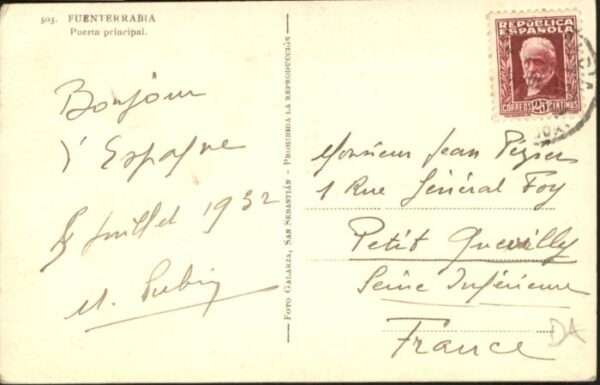 505. FUENTERRABIA
Puerta principal.
Bonjour
d'Espagne
Juillet 1932
FOTO GALARZA, SAN SEBASTIÁN - PROHIBIDA LA REPRODUCCIÓN
REPÚBLICA
ESPAÑOLA
CORREOS 25 CENTIMOS
Monsieur Jean
1 Rue Général Foy
Petit Quevilly
Seine Inférieure
France
DA